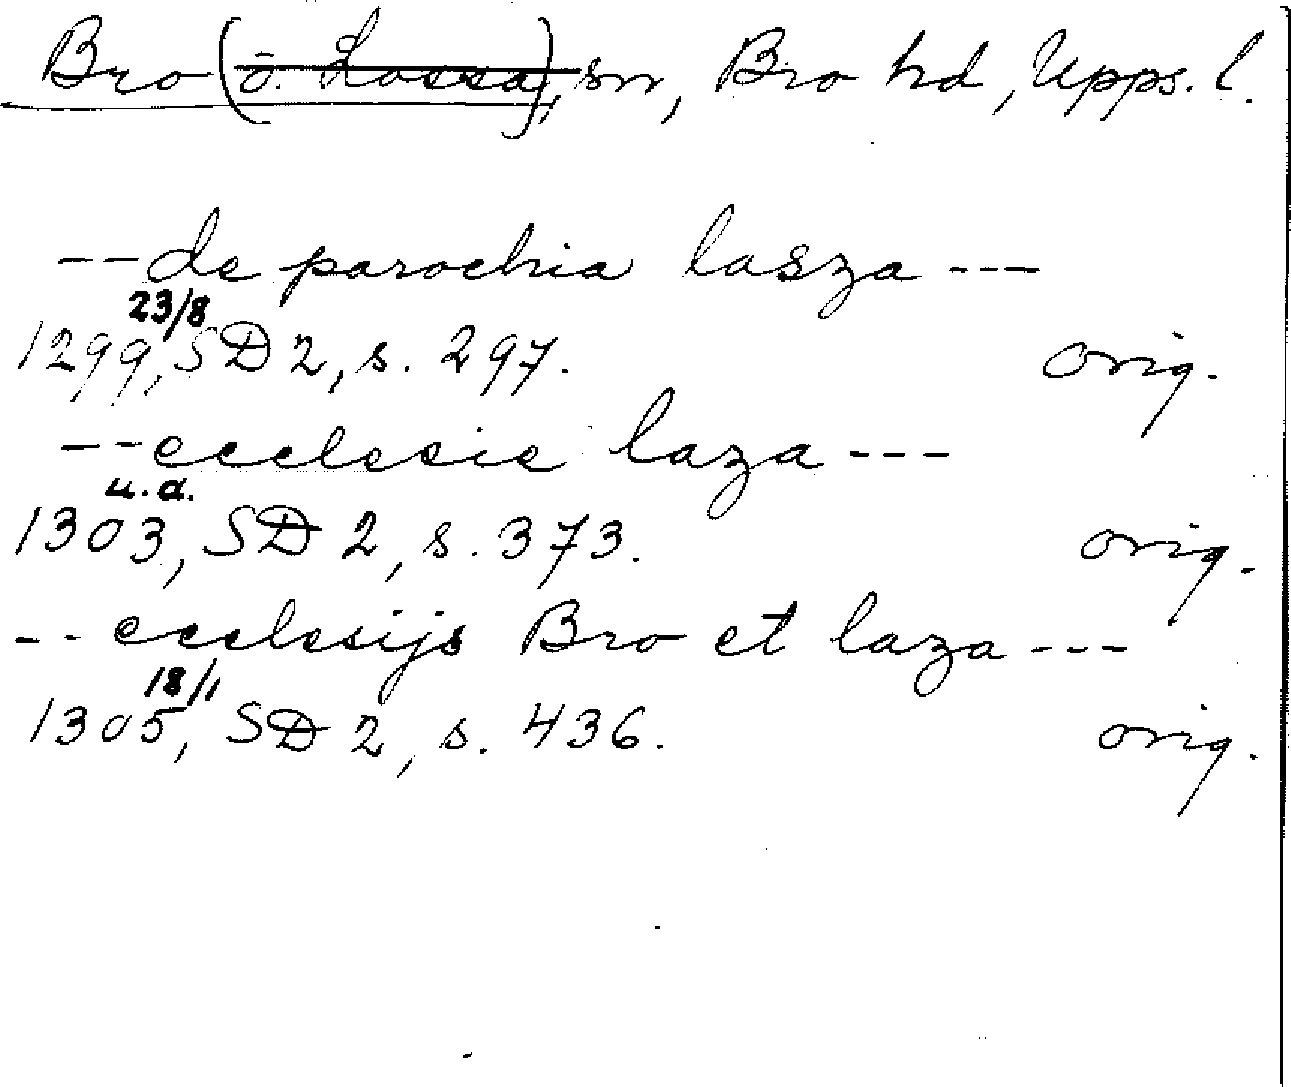 Bro (o. Lossa), sn, Bro hd, Upps. l.
-- de parochia lasza ---
23/8
1299, SD 2, s. 297. orig.
-- ecclesie laza ---
u.d.
1303, SD 2, s. 373. orig.
-- ecclesijs Bro et laza ---
18/1
1305, SD 2, s. 436. orig.